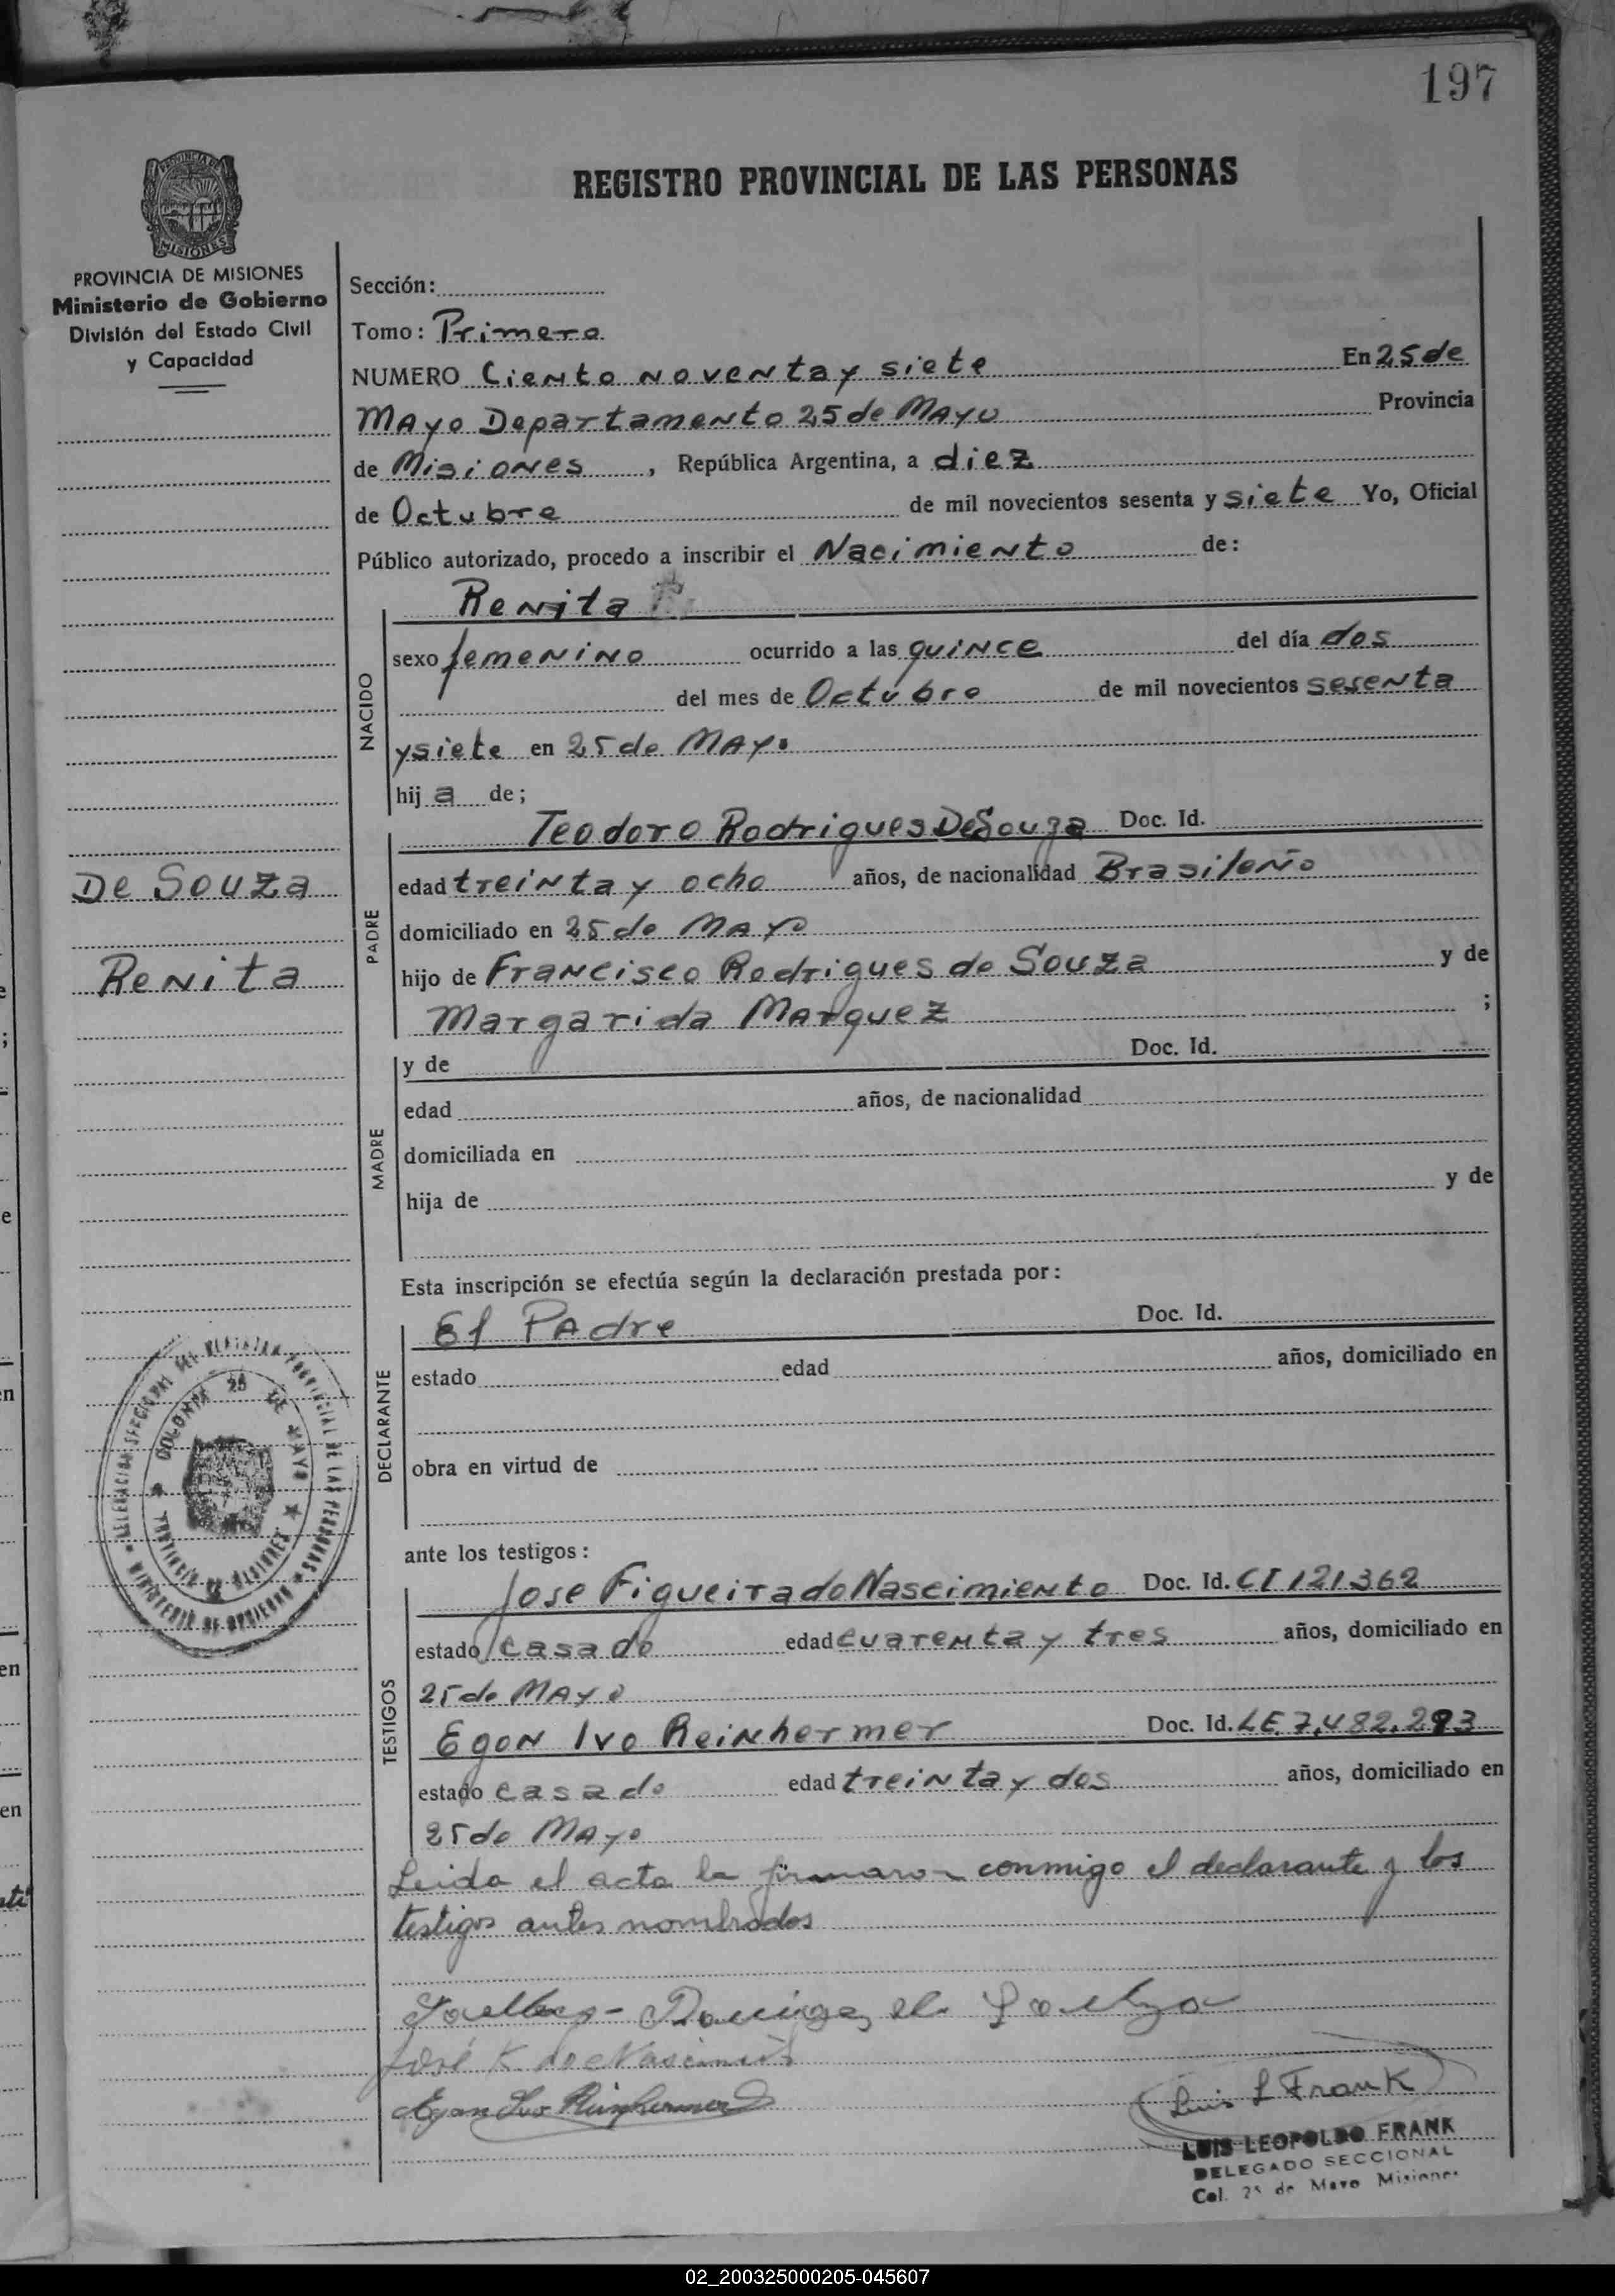 197
REGISTRO PROVINCIAL DE LAS PERSONAS
PROVINCIA DE MISIONES
PROVINCIA DE MISIONES
Ministerio de Gobierno
División del Estado Civil
y Capacidad
De Souza
Renita
DELEGACION SECCIONAL DEL REGISTRO PROVINCIAL DE LAS PERSONAS
MINISTERIO DE GOBIERNO
COLONIA 25 DE MAYO
PROVINCIA DE MISIONES
Sección:
Tomo: Primero
NUMERO Ciento noventa y siete En 25 de
Mayo Departamento 25 de Mayo Provincia
de Misiones, República Argentina, a diez
de Octubre de mil novecientos sesenta y siete Yo, Oficial
Público autorizado, procedo a inscribir el Nacimiento de:
Renita
NACIDO
sexo femenino ocurrido a las quince del día dos
del mes de Octubre de mil novecientos sesenta
y siete en 25 de Mayo
hij a de;
Teodoro Rodrigues De Souza Doc. Id.
PADRE
edad treinta y ocho años, de nacionalidad Brasileño
domiciliado en 25 de Mayo
hijo de Francisco Rodrigues de Souza y de
Margarida Marquez ;
y de Doc. Id.
MADRE
edad años, de nacionalidad
domiciliada en
hija de y de
Esta inscripción se efectúa según la declaración prestada por:
El Padre Doc. Id.
DECLARANTE
estado edad años, domiciliado en
obra en virtud de
ante los testigos:
Jose Figueira do Nascimiento Doc. Id. CI 121362
TESTIGOS
estado casado edad cuarenta y tres años, domiciliado en
25 de Mayo
Egon Ivo Reinhermer Doc. Id. LE. 7,482.293
estado casado edad treinta y dos años, domiciliado en
25 de Mayo
Leida el acta la firmaron conmigo el declarante y los
testigos antes nombrados
Egon Ivo Reinhermer
Luis L Frank
LUIS LEOPOLDO FRANK
DELEGADO SECCIONAL
Col. 25 de Mayo Misiones
02_200325000205-045607